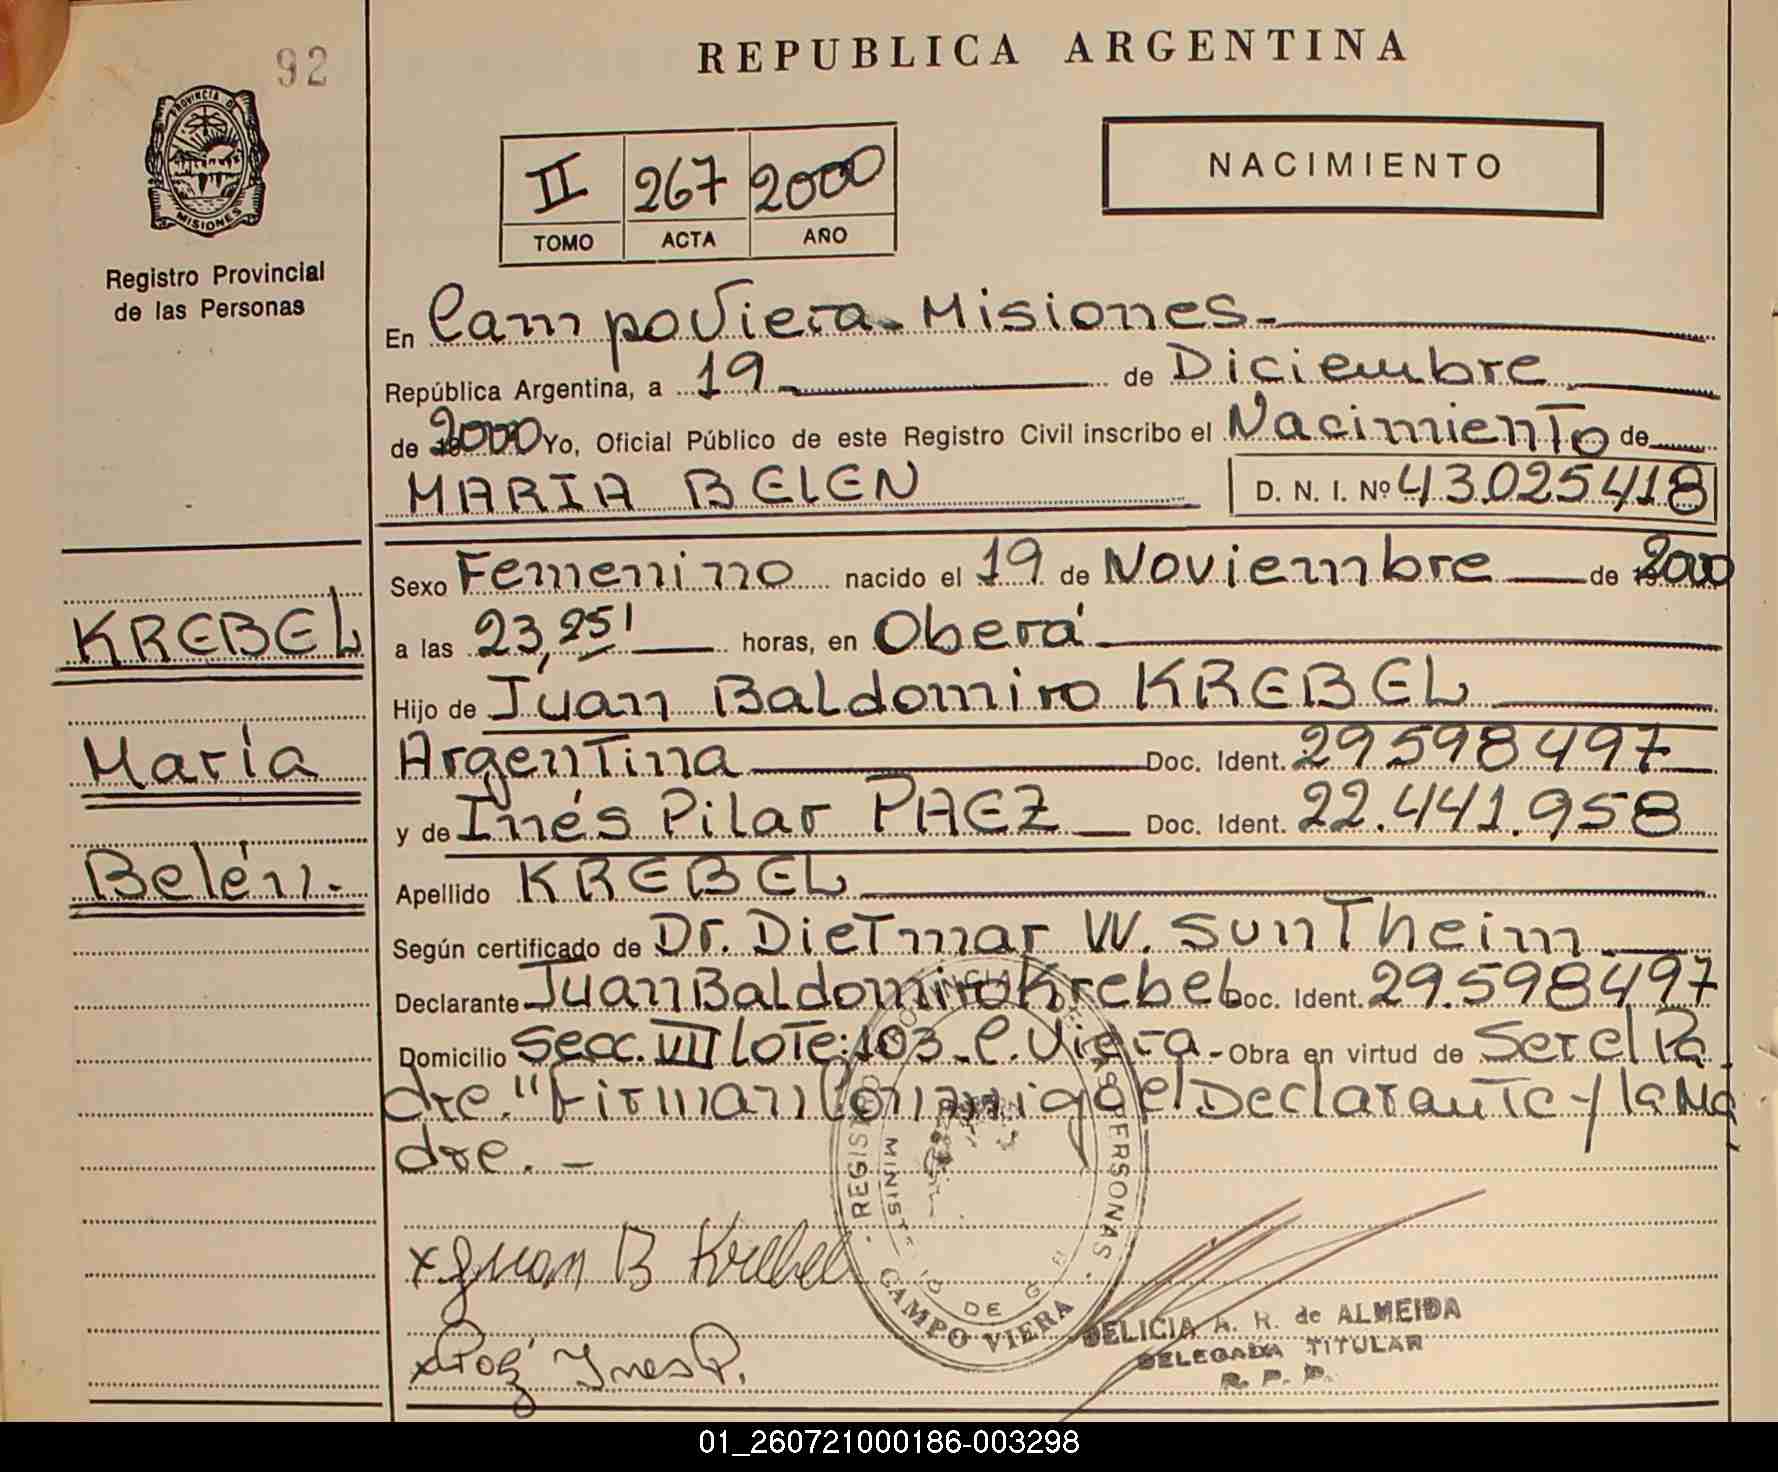 92
REPUBLICA ARGENTINA
PROVINCIA DE
MISIONES
Registro Provincial
de las Personas
II 267 2000
TOMO ACTA AÑO
NACIMIENTO
En Campo Viera - Misiones -
República Argentina, a 19 de Diciembre
de 2000 Yo, Oficial Público de este Registro Civil inscribo el Nacimiento de
MARIA BELEN D. N. I. Nº 43.025418
Sexo Femenino nacido el 19 de Noviembre de 2000
a las 23,25' horas, en Oberá
Hijo de Juan Baldomiro KREBEL
Argentina Doc. Ident. 29.598497
y de Inés Pilar PAEZ Doc. Ident. 22.441.958
Apellido KREBEL
Según certificado de Dr. Dietmar W. Suntheim
Declarante Juan Baldomiro Krebel Doc. Ident. 29.598497
Domicilio Secc. VII Lote: 103 - C. Viera - Obra en virtud de Ser el Pa
dre." Firman Conmigo el Declarante y la Ma
dre. -
KREBEL
María
Belén -
x Juan B Krebel
Ines P.
CAMPO VIERA
DELICIA A. R. de ALMEIDA
DELEGADA TITULAR
R. P. P.
01_260721000186-003298